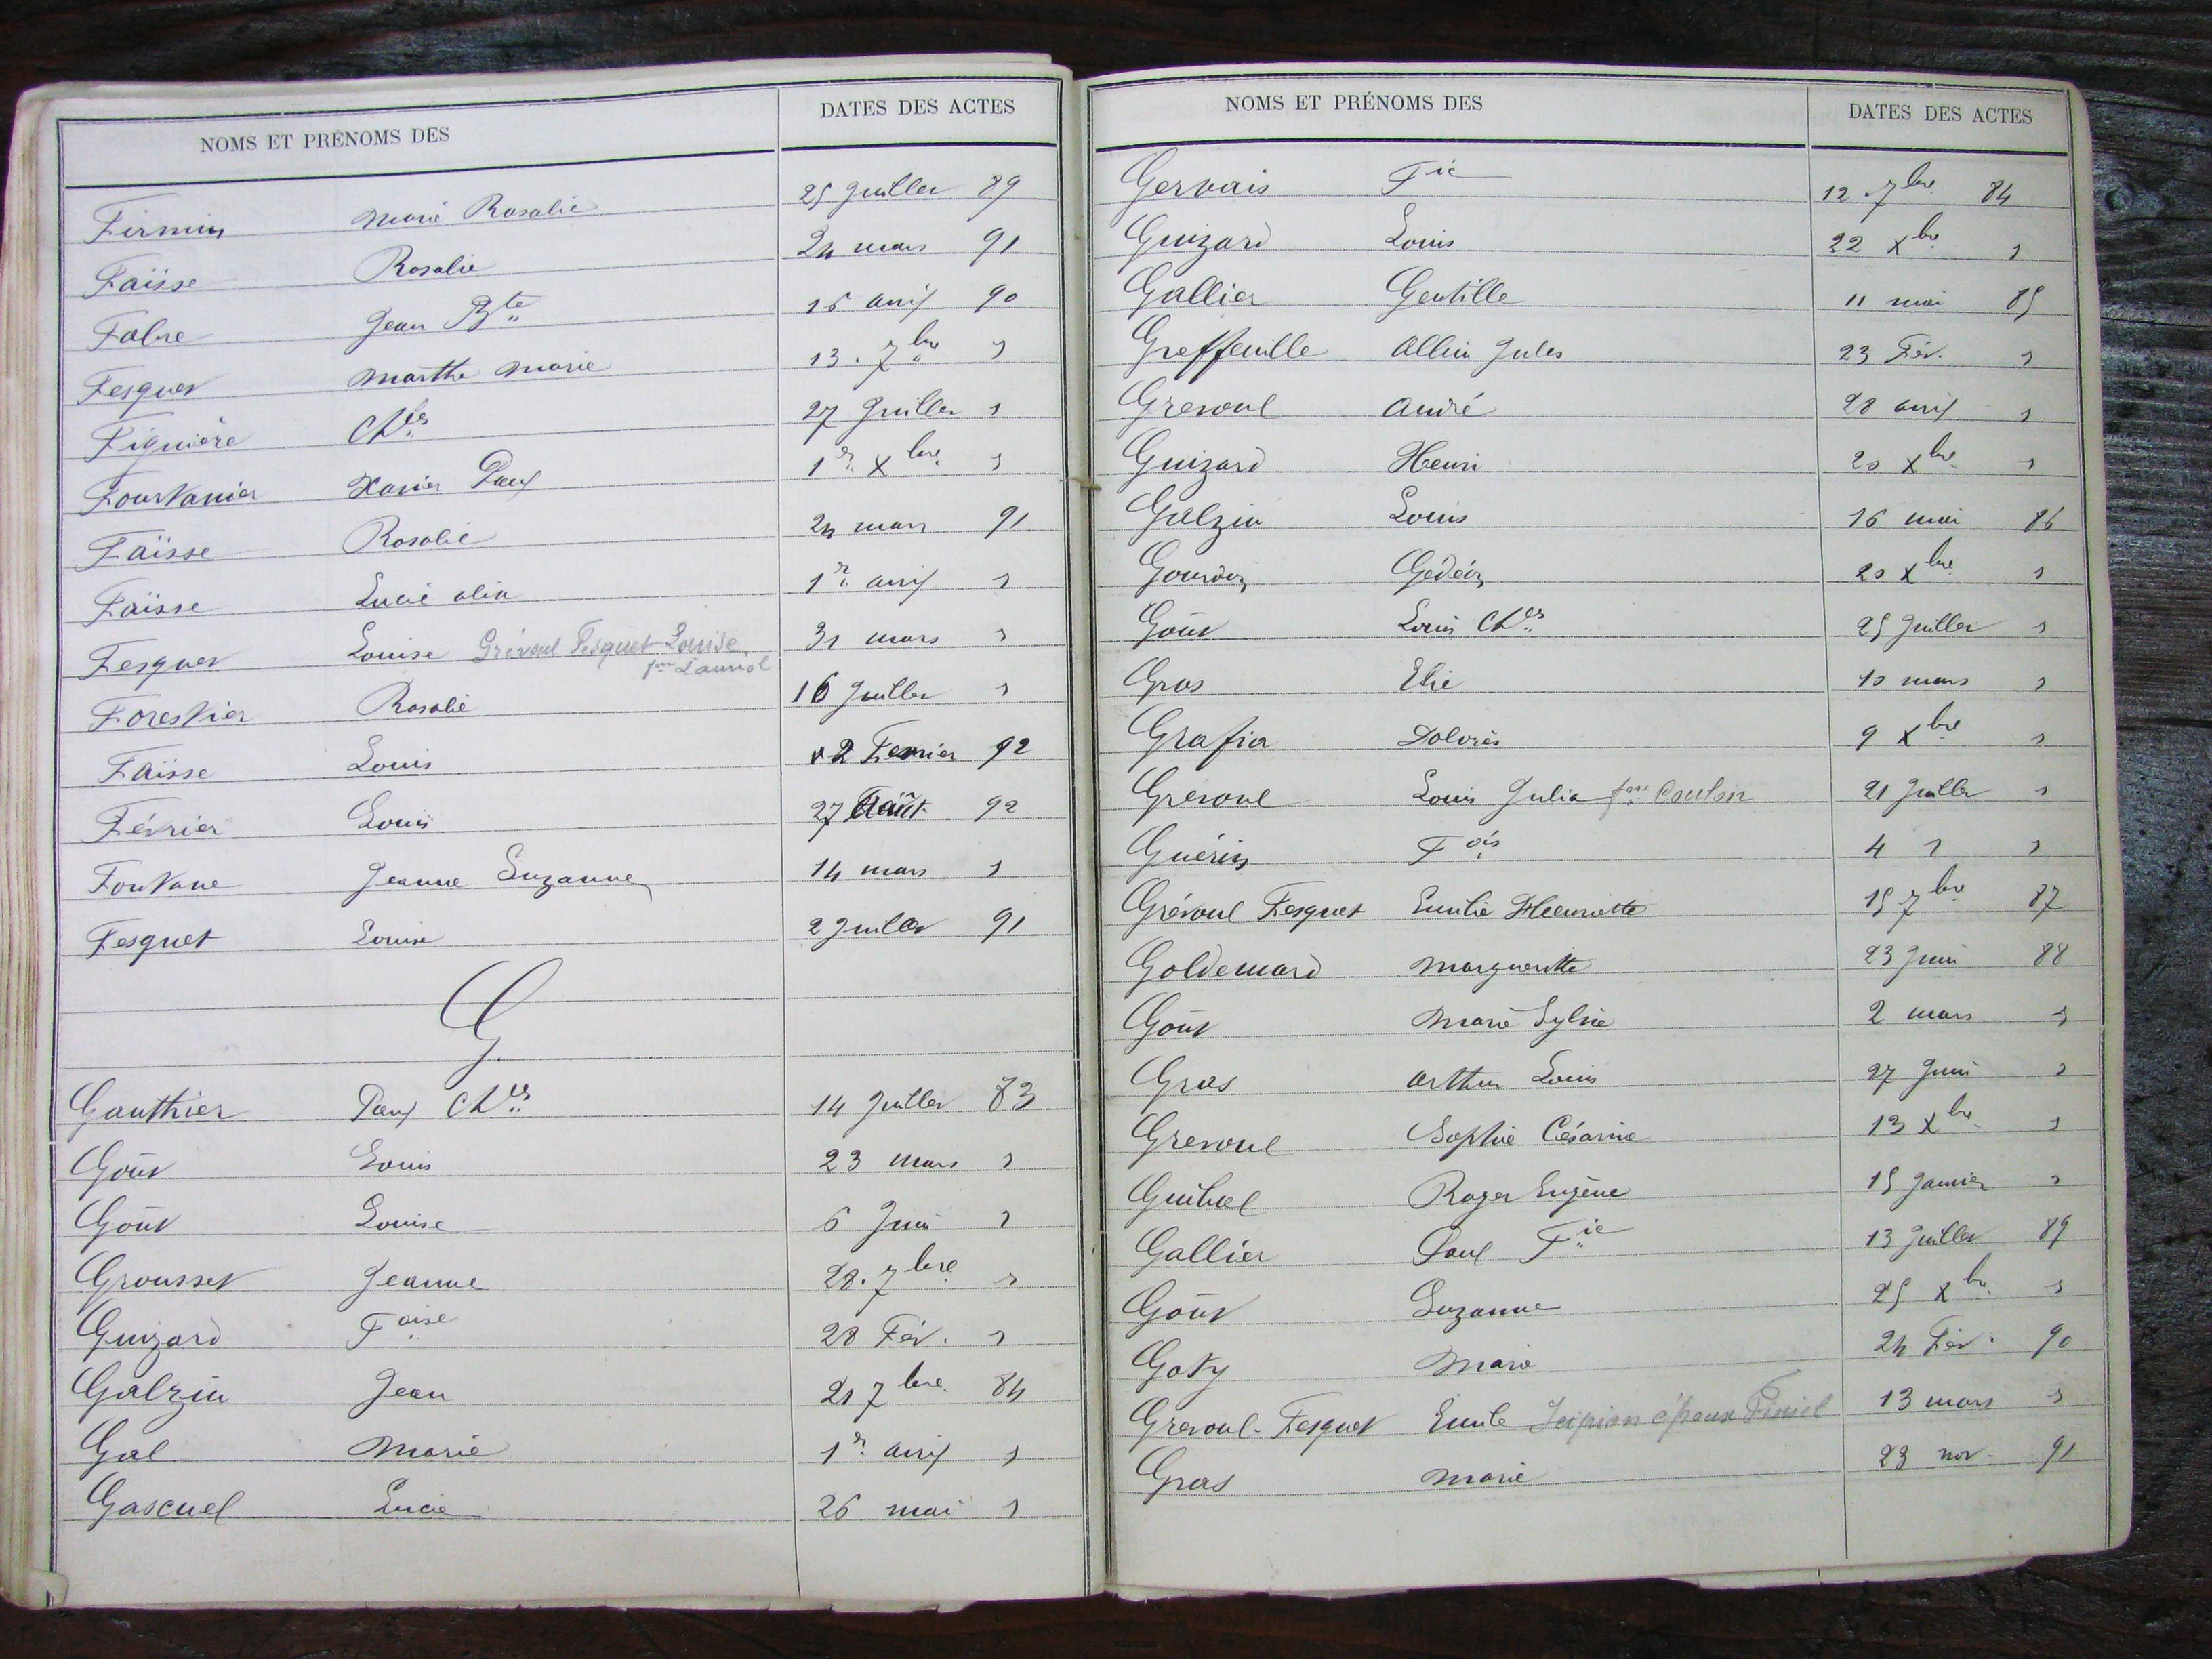 NOMS ET PRÉNOMS DES DATES DES ACTES
Firmin Marie Rosalie 25 Juillet 89
Faïsse Rosalie 24 mars 91
Fabre Jean Bte 15 avril 90
Fesquet Marthe Marie 13. 7bre "
Figuière Chles 27 Juillet "
Fourtanier Xavier Paul 1er Xbre "
Faïsse Rosalie 24 mars 91
Faïsse Lucie Alix 1er avril "
Fesquet Louise Grévoul Fesquet Louise 31 mars "
fme Lauriol
Forestier Rosalie 16 Juillet "
Faïsse Louis 2 Fevrier 92
Février Louis 27 Août 92
Fontane Jeanne Suzanne 14 mars "
Fesquet Louise 2 Juillet 91
G.
Gauthier Paul Chles 14 Juillet 83
Goût Louis 23 mars "
Goût Louise 6 Juin "
Grousset Jeanne 28. 7bre "
Guizard Foise 28 Fév. "
Galzin Jean 21 7bre 84
Gal Marie 1er avril "
Gascuel Lucie 26 mai "
NOMS ET PRÉNOMS DES DATES DES ACTES
Gervais Fic 12 7bre 84
Guizard Louis 22 Xbre "
Gallier Gentille 11 mai 85
Greffeuille Albin Jules 23 Fév. "
Grevoul André 28 avril "
Guizard Henri 20 Xbre "
Galzin Louis 16 mai 86
Gourdon Gédéon 20 Xbre "
Goût Louis Chles 25 Juillet "
Gras Elie 10 mars "
Grafia Dolorès 9 Xbre "
Grevoul Louis Julia fme Coulon 21 Juillet "
Guérin Fois 4 " "
Grévoul Fesquet Emilie Henriette 15 7bre 87
Goldemard Marguerite 23 Juin 88
Goût Marie Sylvie 2 mars "
Gras Arthur Louis 27 Juin "
Grevoul Sophie Césarine 13 Xbre "
Guibal Roger Eugène 15 Janvier "
Gallier Paul Fic 13 Juillet 89
Goût Suzanne 25 Xbre "
Goty Marie 24 Fév. 90
Grevoul-Fesquet Emile Scipion époux Finiel 13 mars "
Gras Marie 23 nov. 91